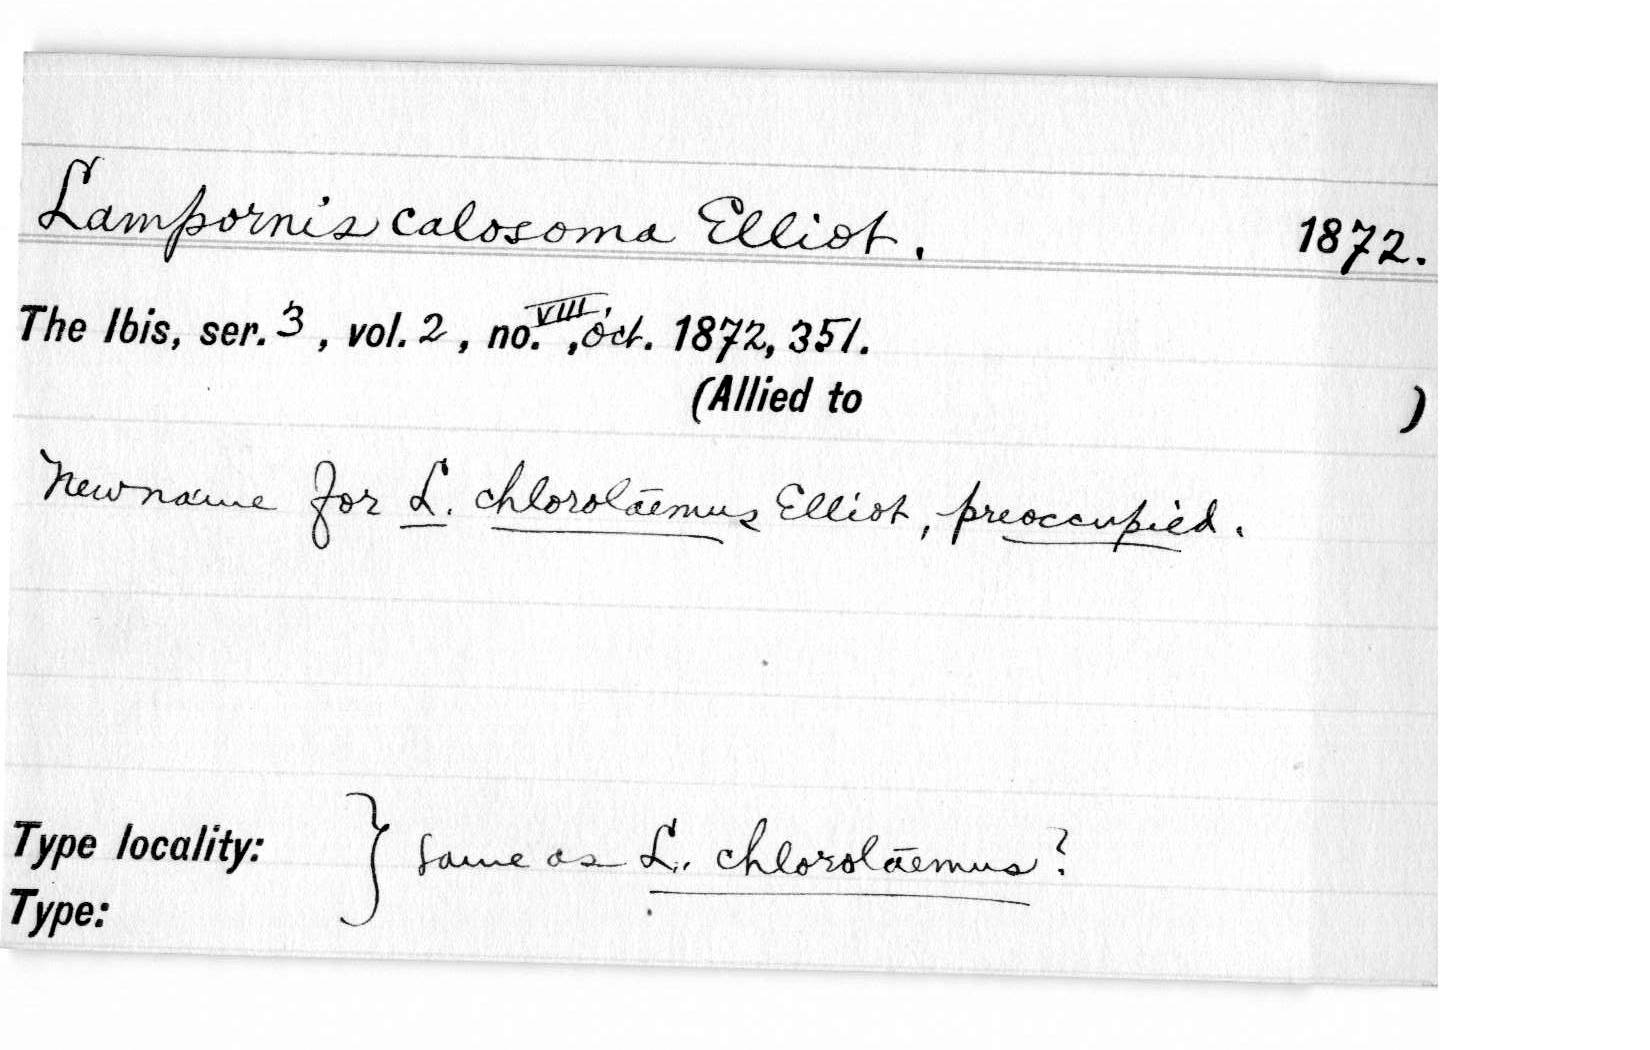 Lampornis calosoma Elliot. 1872.
The Ibis, ser. 3, vol. 2, no. VIII, Oct. 1872, 351.
(Allied to )
New name for L. chlorolāemus Elliot, preoccupied.
Type locality: } Same as L. chlorolāemus?
Type: